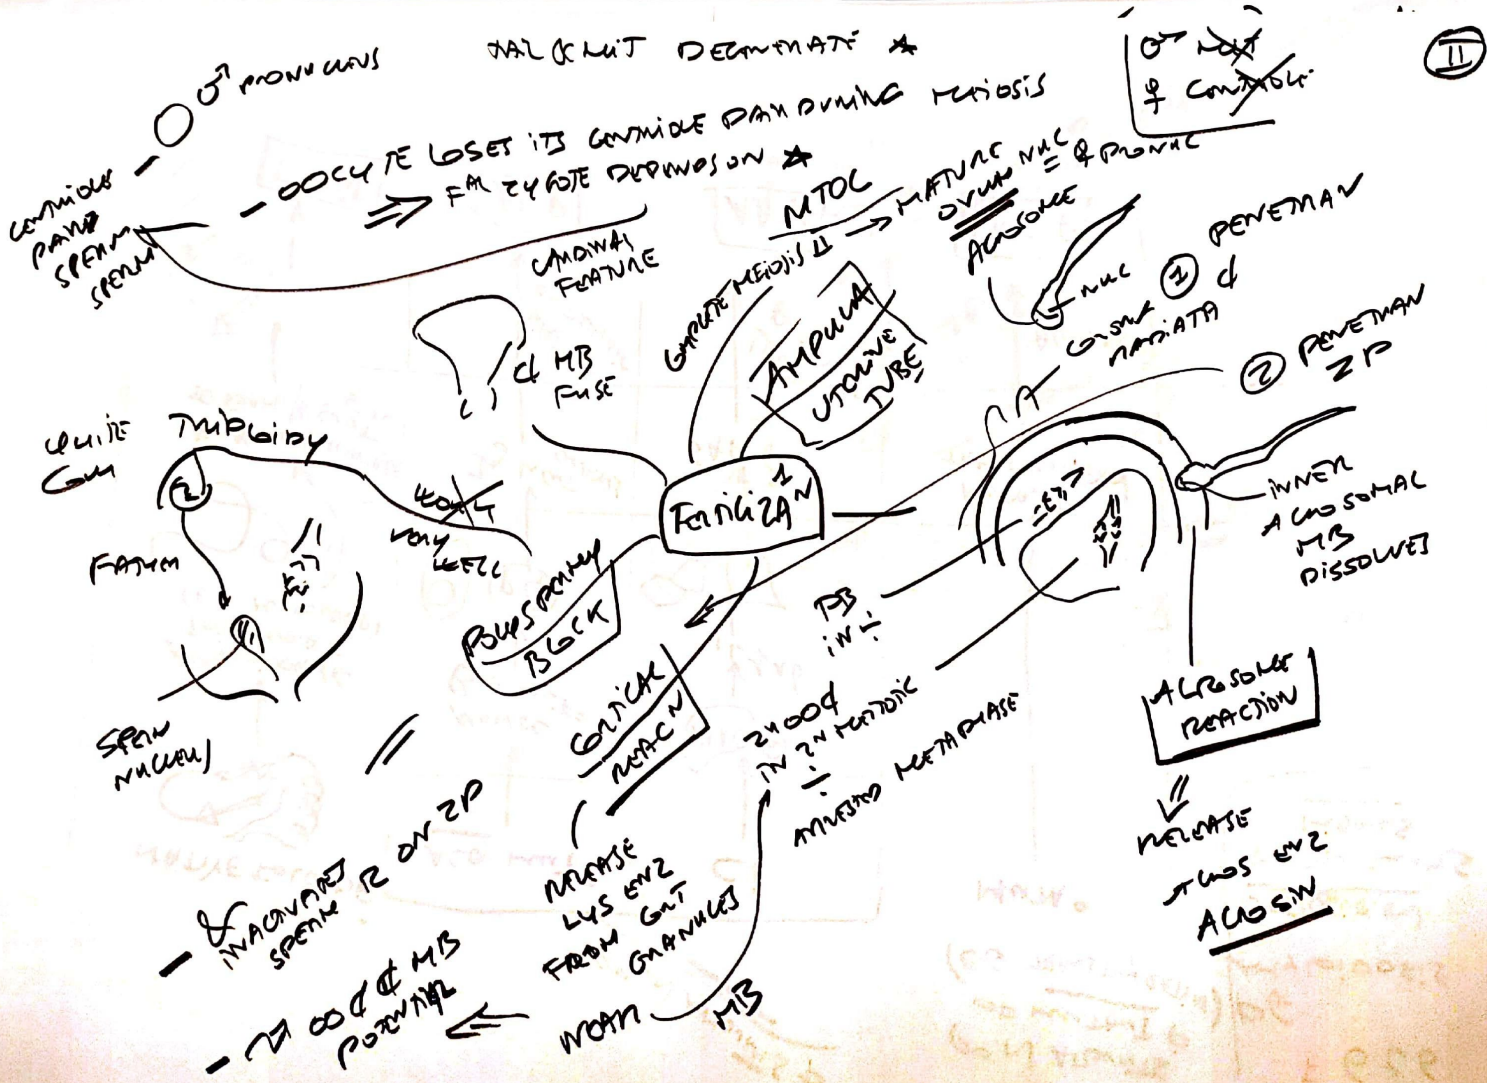 ♂ PRONUCLEUS
DEGENERATE ☆
♂ MIT
♀ CENTRIOLE
II
CENTRIOLE
PAIR
SPERM
SPERM
- OOCYTE LOSES ITS CENTRIOLE PAIR DURING MEIOSIS
⇒ ZYGOTE DEPENDS ON ☆
CARDINAL
FEATURE
MTOC
COMPLETE MEIOSIS II → MATURE
OVUM NUC
= ♀ PRONUC
ACROSOME
NUC
① PENETRAN
CORONA
RADIATA
② PENETRAN
ZP
MB
FUSE
AMPULLA
UTERINE
TUBE
TRIPLOIDY
FERTILIZAN
1
VERY
WELL
POLYSPERMY
BLOCK
SPERM
NUCLEUS
CORTICAL
REACN
PB
IN
2N OO¢
IN 2N MEIOTIC
ARRESTED METAPHASE
INNER
ACROSOMAL
MB
DISSOLVES
ACROSOME
REACTION
RELEASE
ACROS ENZ
ACROSIN
RELEASE
LYS ENZ
FROM CORT
GRANULES
- INACTIVATES
SPERM R ON ZP
- OO¢ ¢ MB
POTENTIAL
NEAR
MB